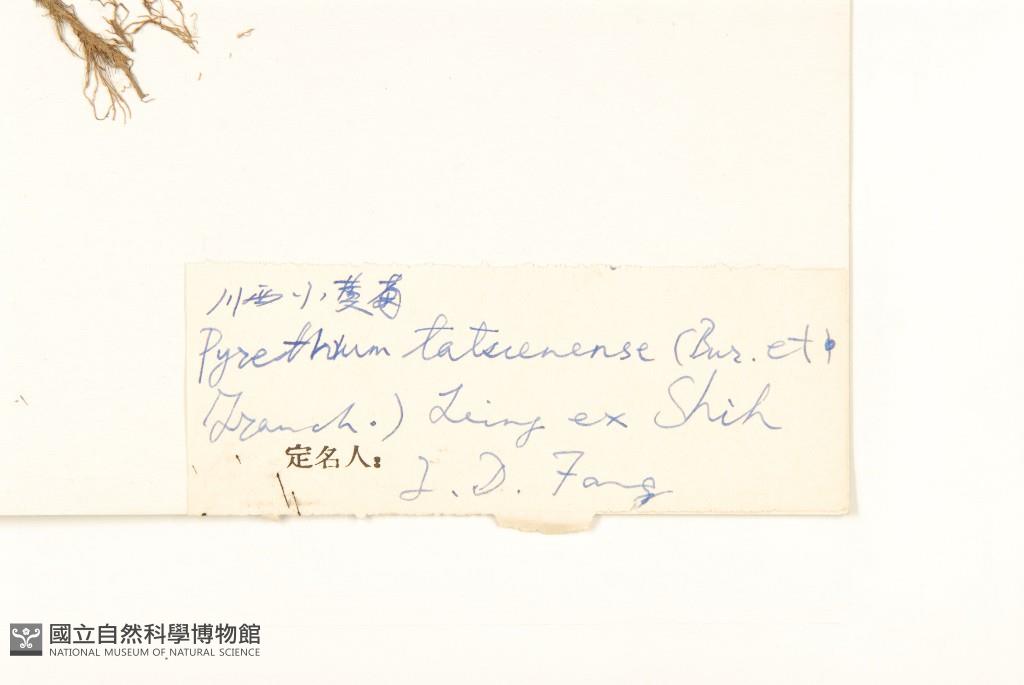 川西小黄菊
Pyrethrum tatsienense (Bur. et
Franch.) Ling ex Shih
定名人:
D. Fang
國立自然科學博物館
NATIONAL MUSEUM OF NATURAL SCIENCE